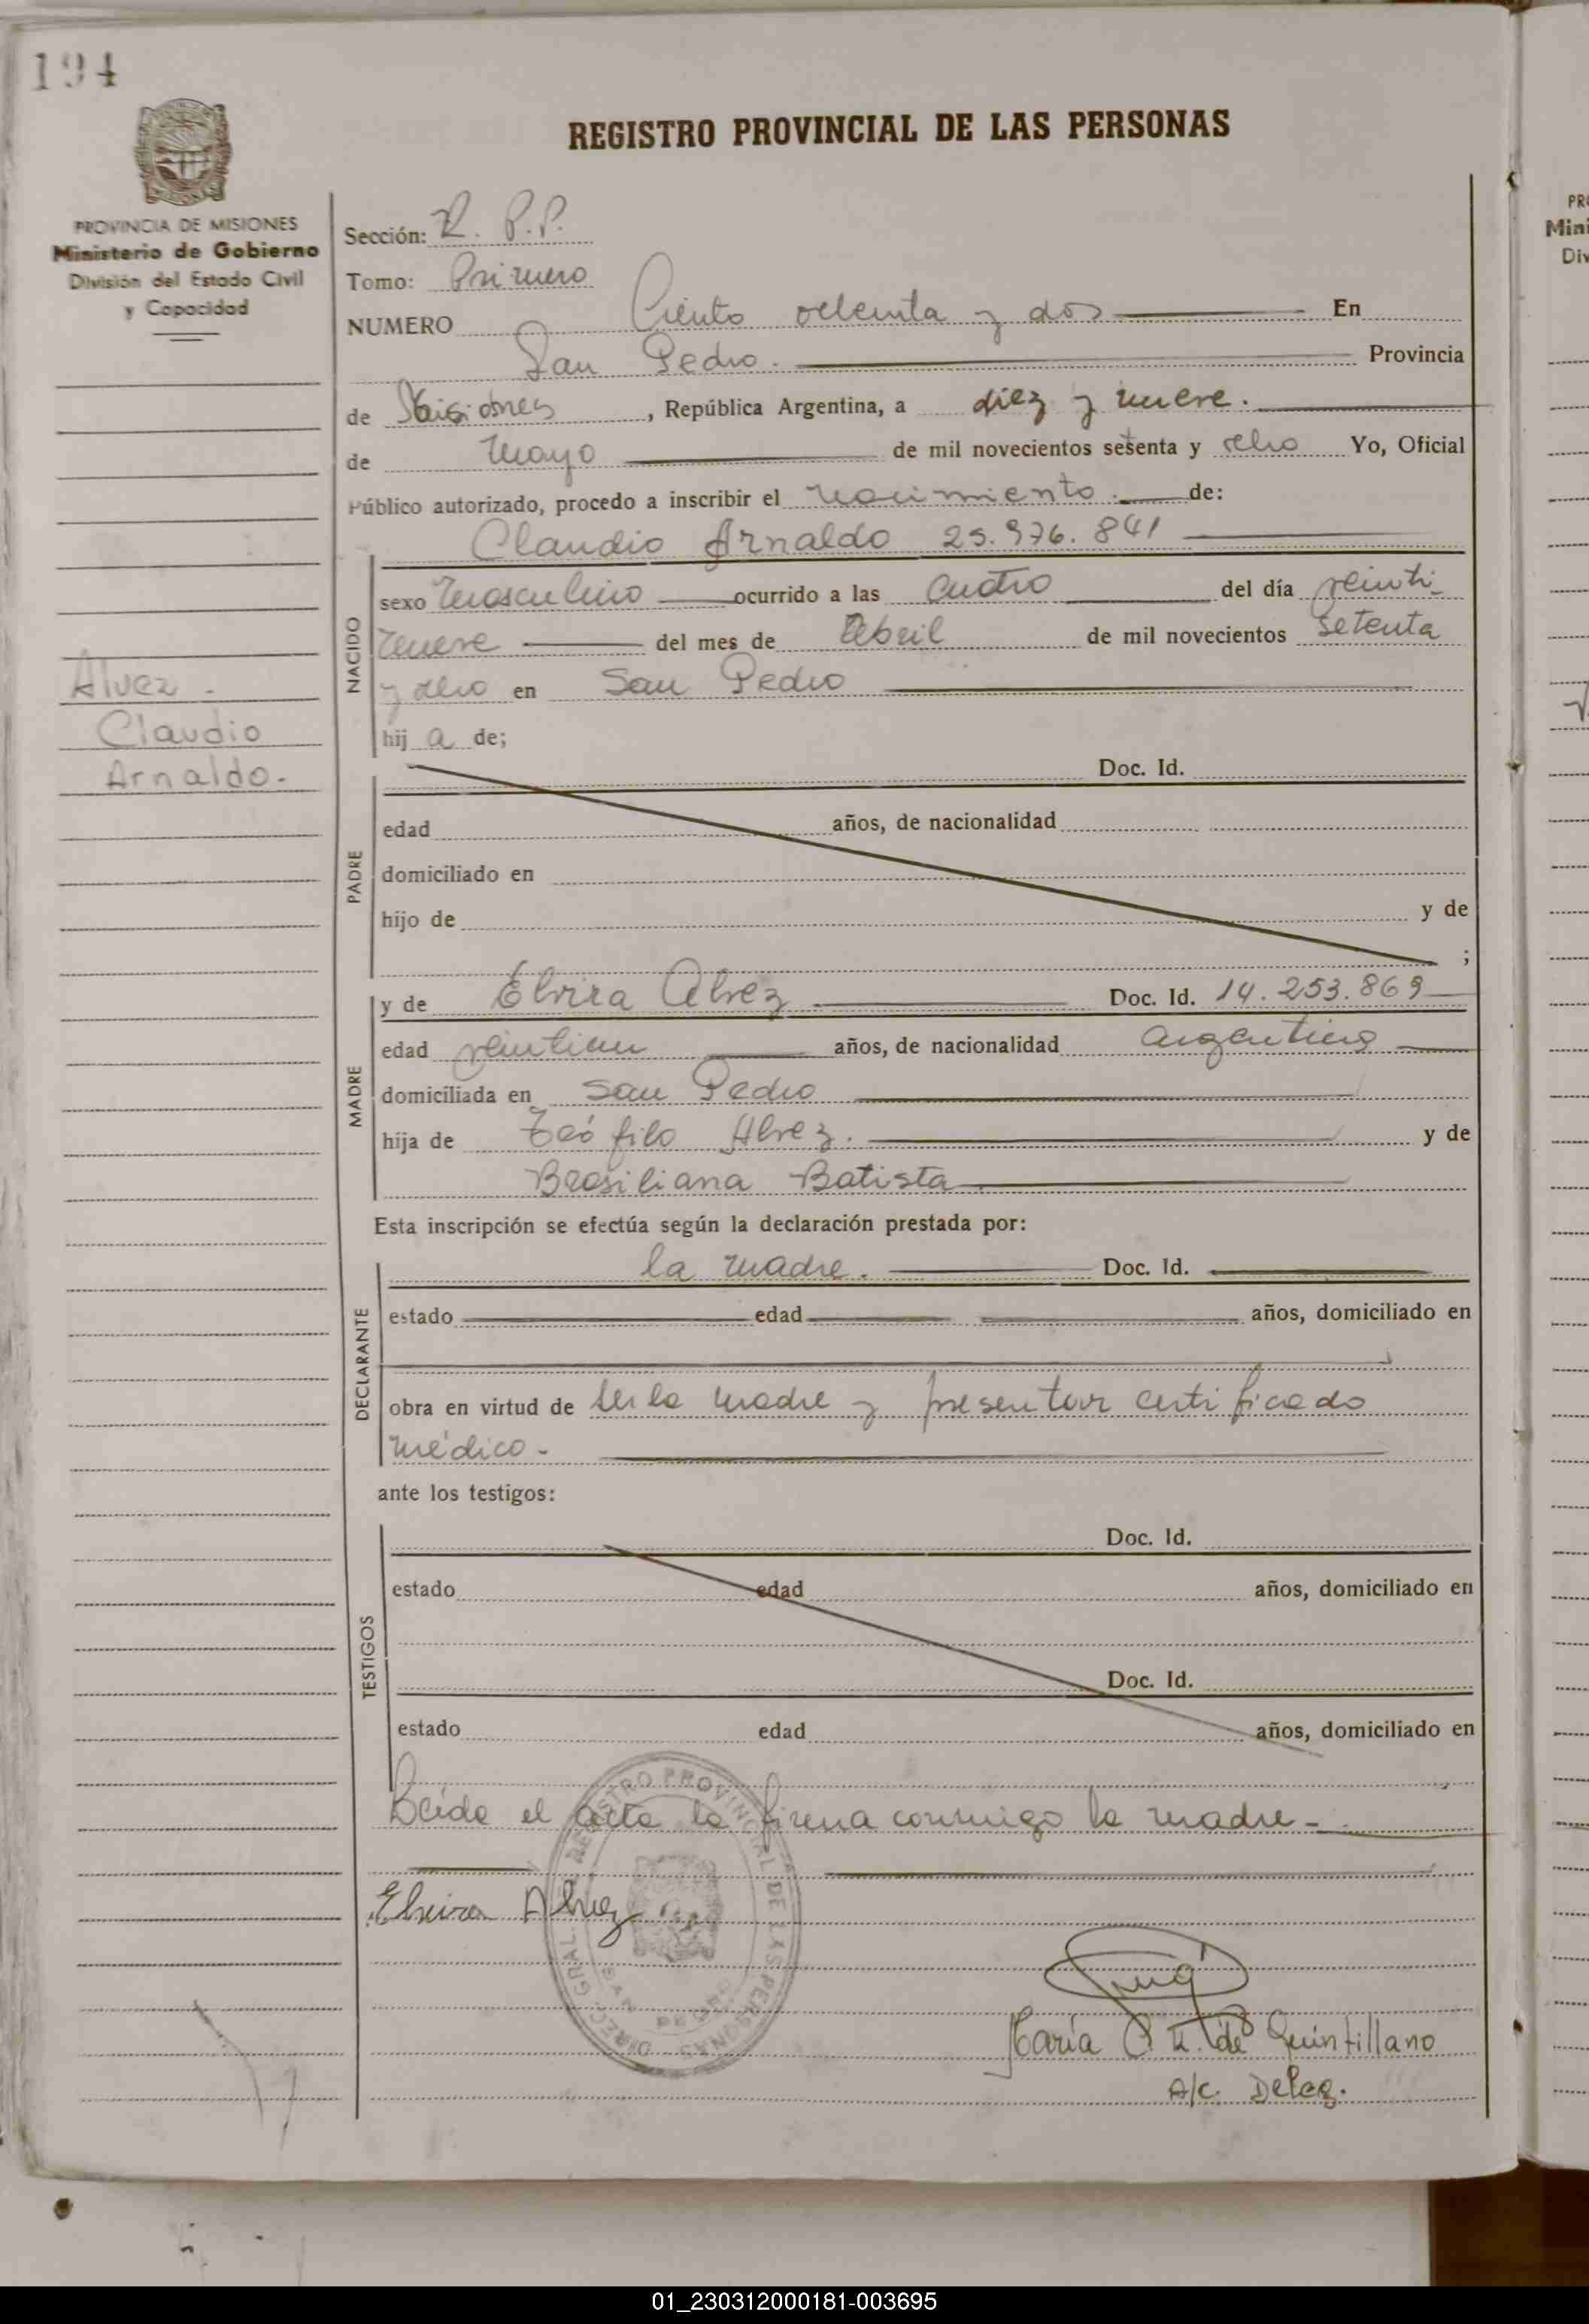 194
REGISTRO PROVINCIAL DE LAS PERSONAS
PROVINCIA DE MISIONES
Ministerio de Gobierno
División del Estado Civil
y Capacidad
Alvez.
Claudio
Arnaldo.
Sección: R. P.P.
Tomo: Primero
NUMERO Ciento ochenta y dos En
San Pedro. Provincia
de Misiones, República Argentina, a diez y nueve.
de Mayo de mil novecientos setenta y ocho Yo, Oficial
Público autorizado, procedo a inscribir el nacimiento de:
Claudio Arnaldo 25.976.841
NACIDO
sexo Masculino ocurrido a las cuatro del día veinti-
nueve del mes de Abril de mil novecientos setenta
y ocho en San Pedro
hij a de;
PADRE
Doc. Id.
edad años, de nacionalidad
domiciliado en
hijo de y de
;
MADRE
y de Elvira Alvez Doc. Id. 14.253.869
edad veintiun años, de nacionalidad argentina
domiciliada en San Pedro
hija de Teófilo Alvez. y de
Brasiliana Batista
Esta inscripción se efectúa según la declaración prestada por:
DECLARANTE
la madre. Doc. Id.
estado edad años, domiciliado en
obra en virtud de ser la madre y presentar certificado
médico-
ante los testigos:
TESTIGOS
Doc. Id.
estado edad años, domiciliado en
Doc. Id.
estado edad años, domiciliado en
Leída el acta la firma conmigo la madre-
Elvira Alvez
DIREC. GRAL. REGISTRO PROVINCIAL DE LAS PERSONAS
SAN PEDRO
María de Quintillano
A/c. Deleg.
PRO
Mini
Div
01_230312000181-003695